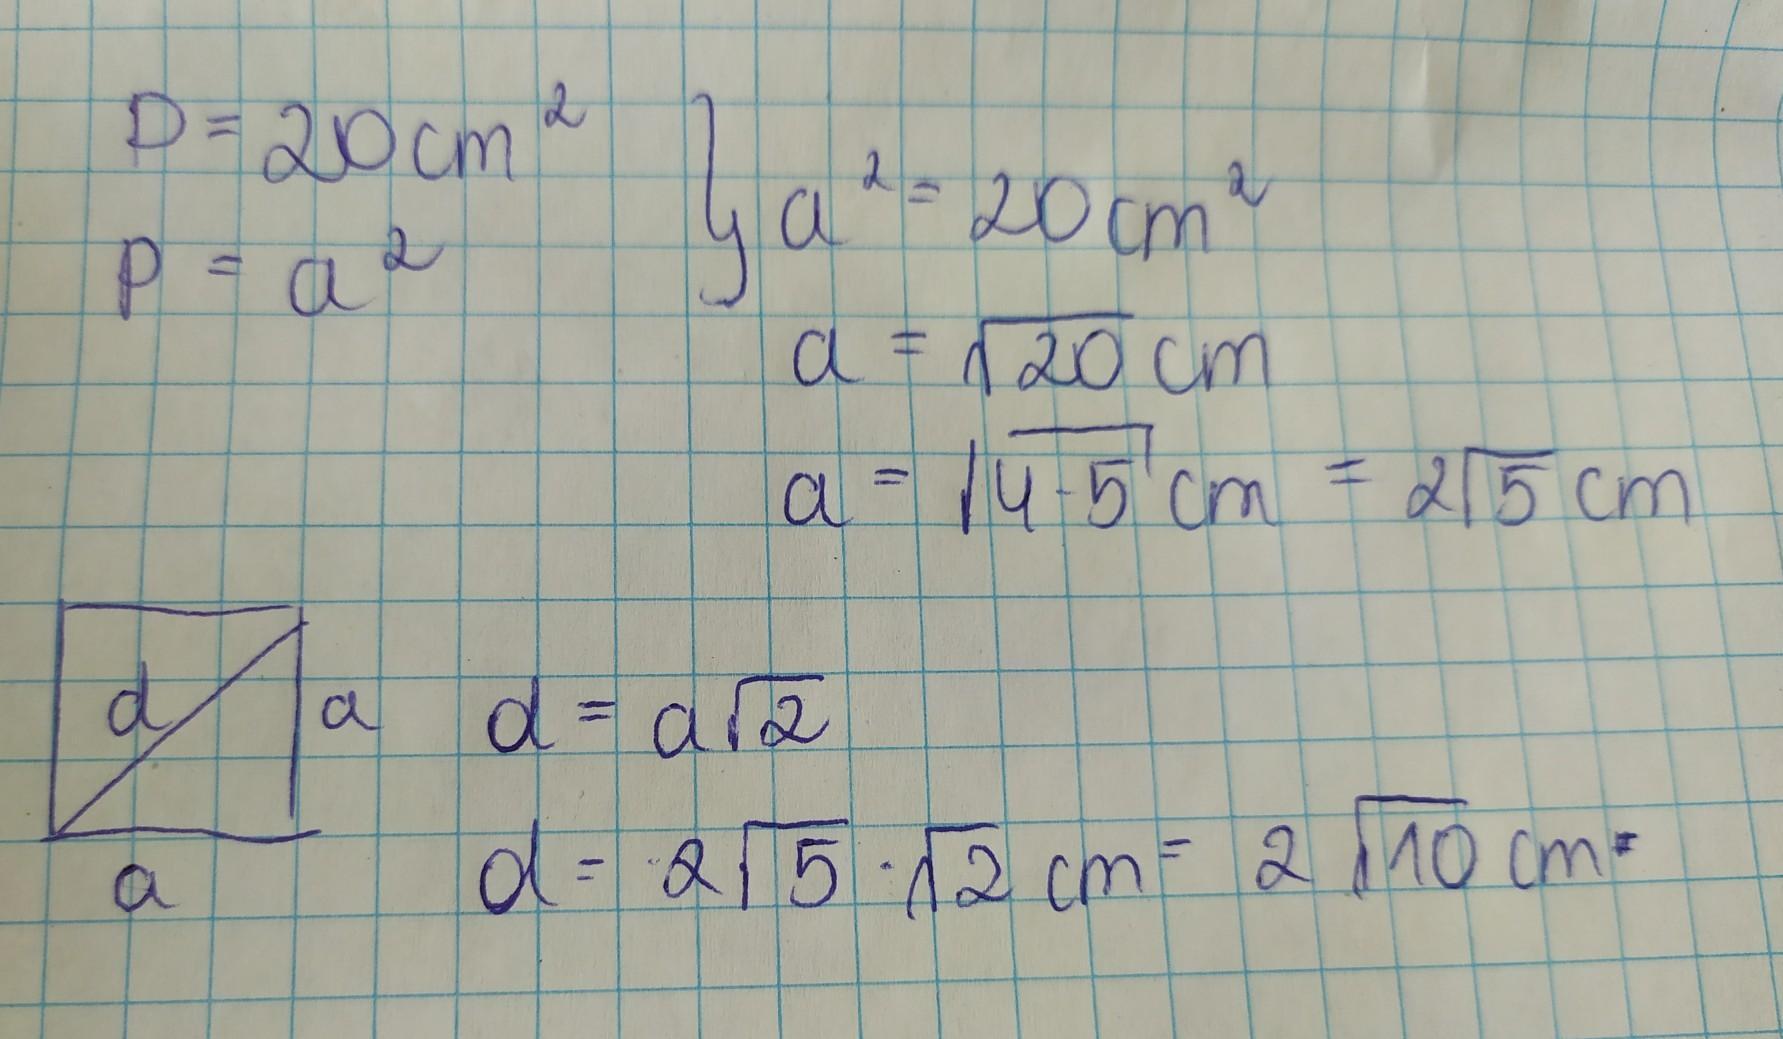 P = 20 cm²
P = a²
} a² = 20 cm²
a = √20 cm
a = √4·5 cm = 2√5 cm
d
a
a
d = a√2
d = 2√5 · √2 cm = 2√10 cm